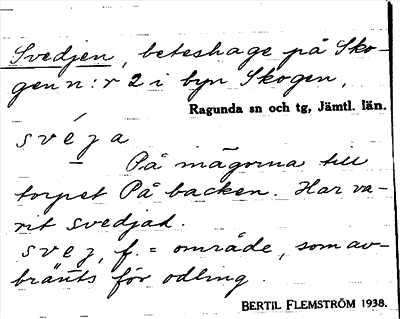 Svedjen, beteshage på Sko-
gen n:r 2 i byn Skogen,
Ragunda sn och tg, Jämtl. län.
svéȷa
På mägorna till
torpet På backen. Har va-
rit svedjad.
sveȷ, f. = område, som av-
bränts för odling.
BERTIL FLEMSTRÖM 1938.